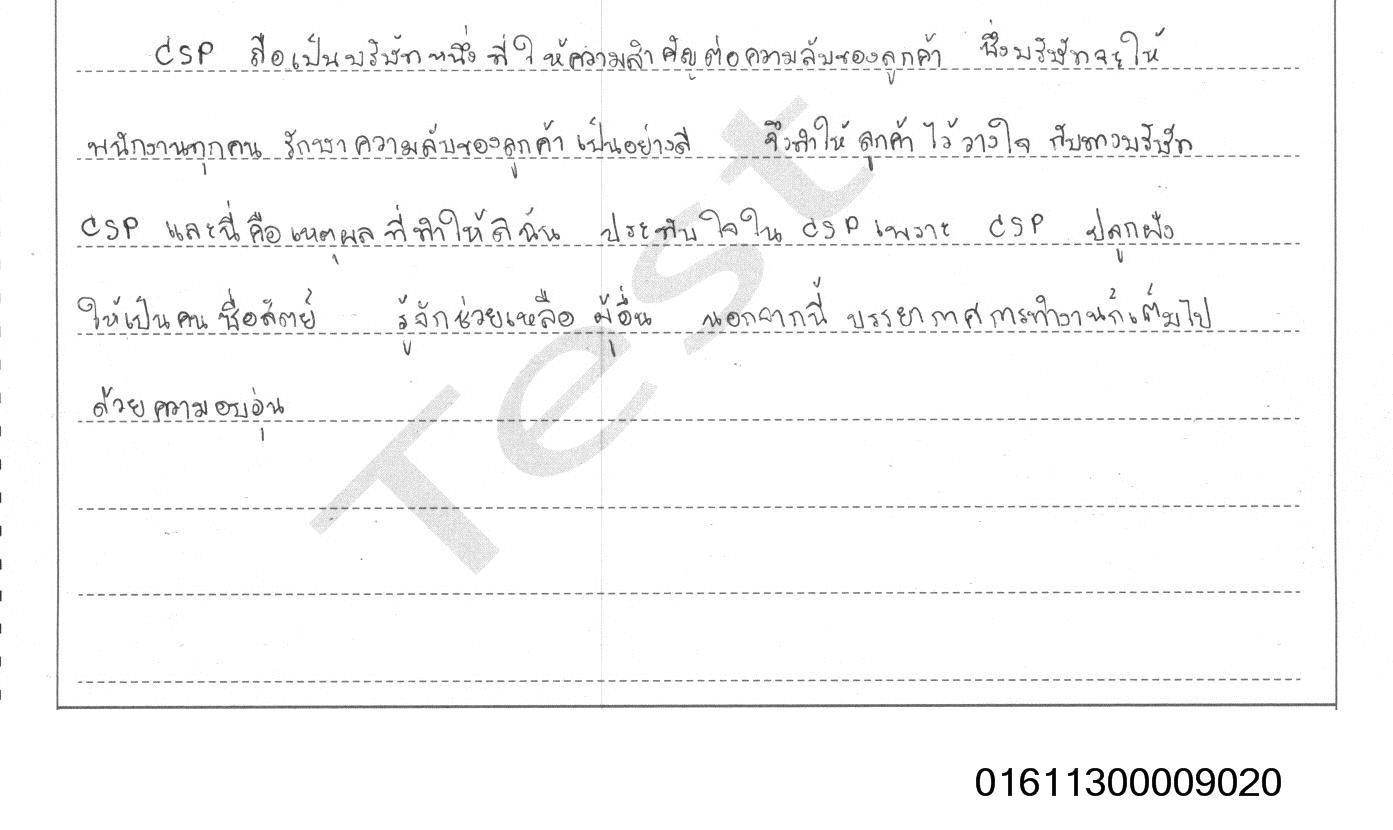 CSP ถือเป็นบริษัทหนึ่งที่ให้ความสำคัญต่อความลับของลูกค้า ซึ่งบริษัทจะให้
พนักงานทุกคน รักษาความลับของลูกค้าเป็นอย่างดี จึงทำให้ลูกค้าไว้วางใจ กับทางบริษัท
CSP และนี่คือเหตุผลที่ทำให้ดิฉัน ประทับใจใน CSP เพราะ CSP ปลูกฝัง
ให้เป็นคนซื่อสัตย์ รู้จักช่วยเหลือผู้อื่น นอกจากนี้ บรรยากาศการทำงานก็เต็มไป
ด้วยความอบอุ่น
Test
01611300009020